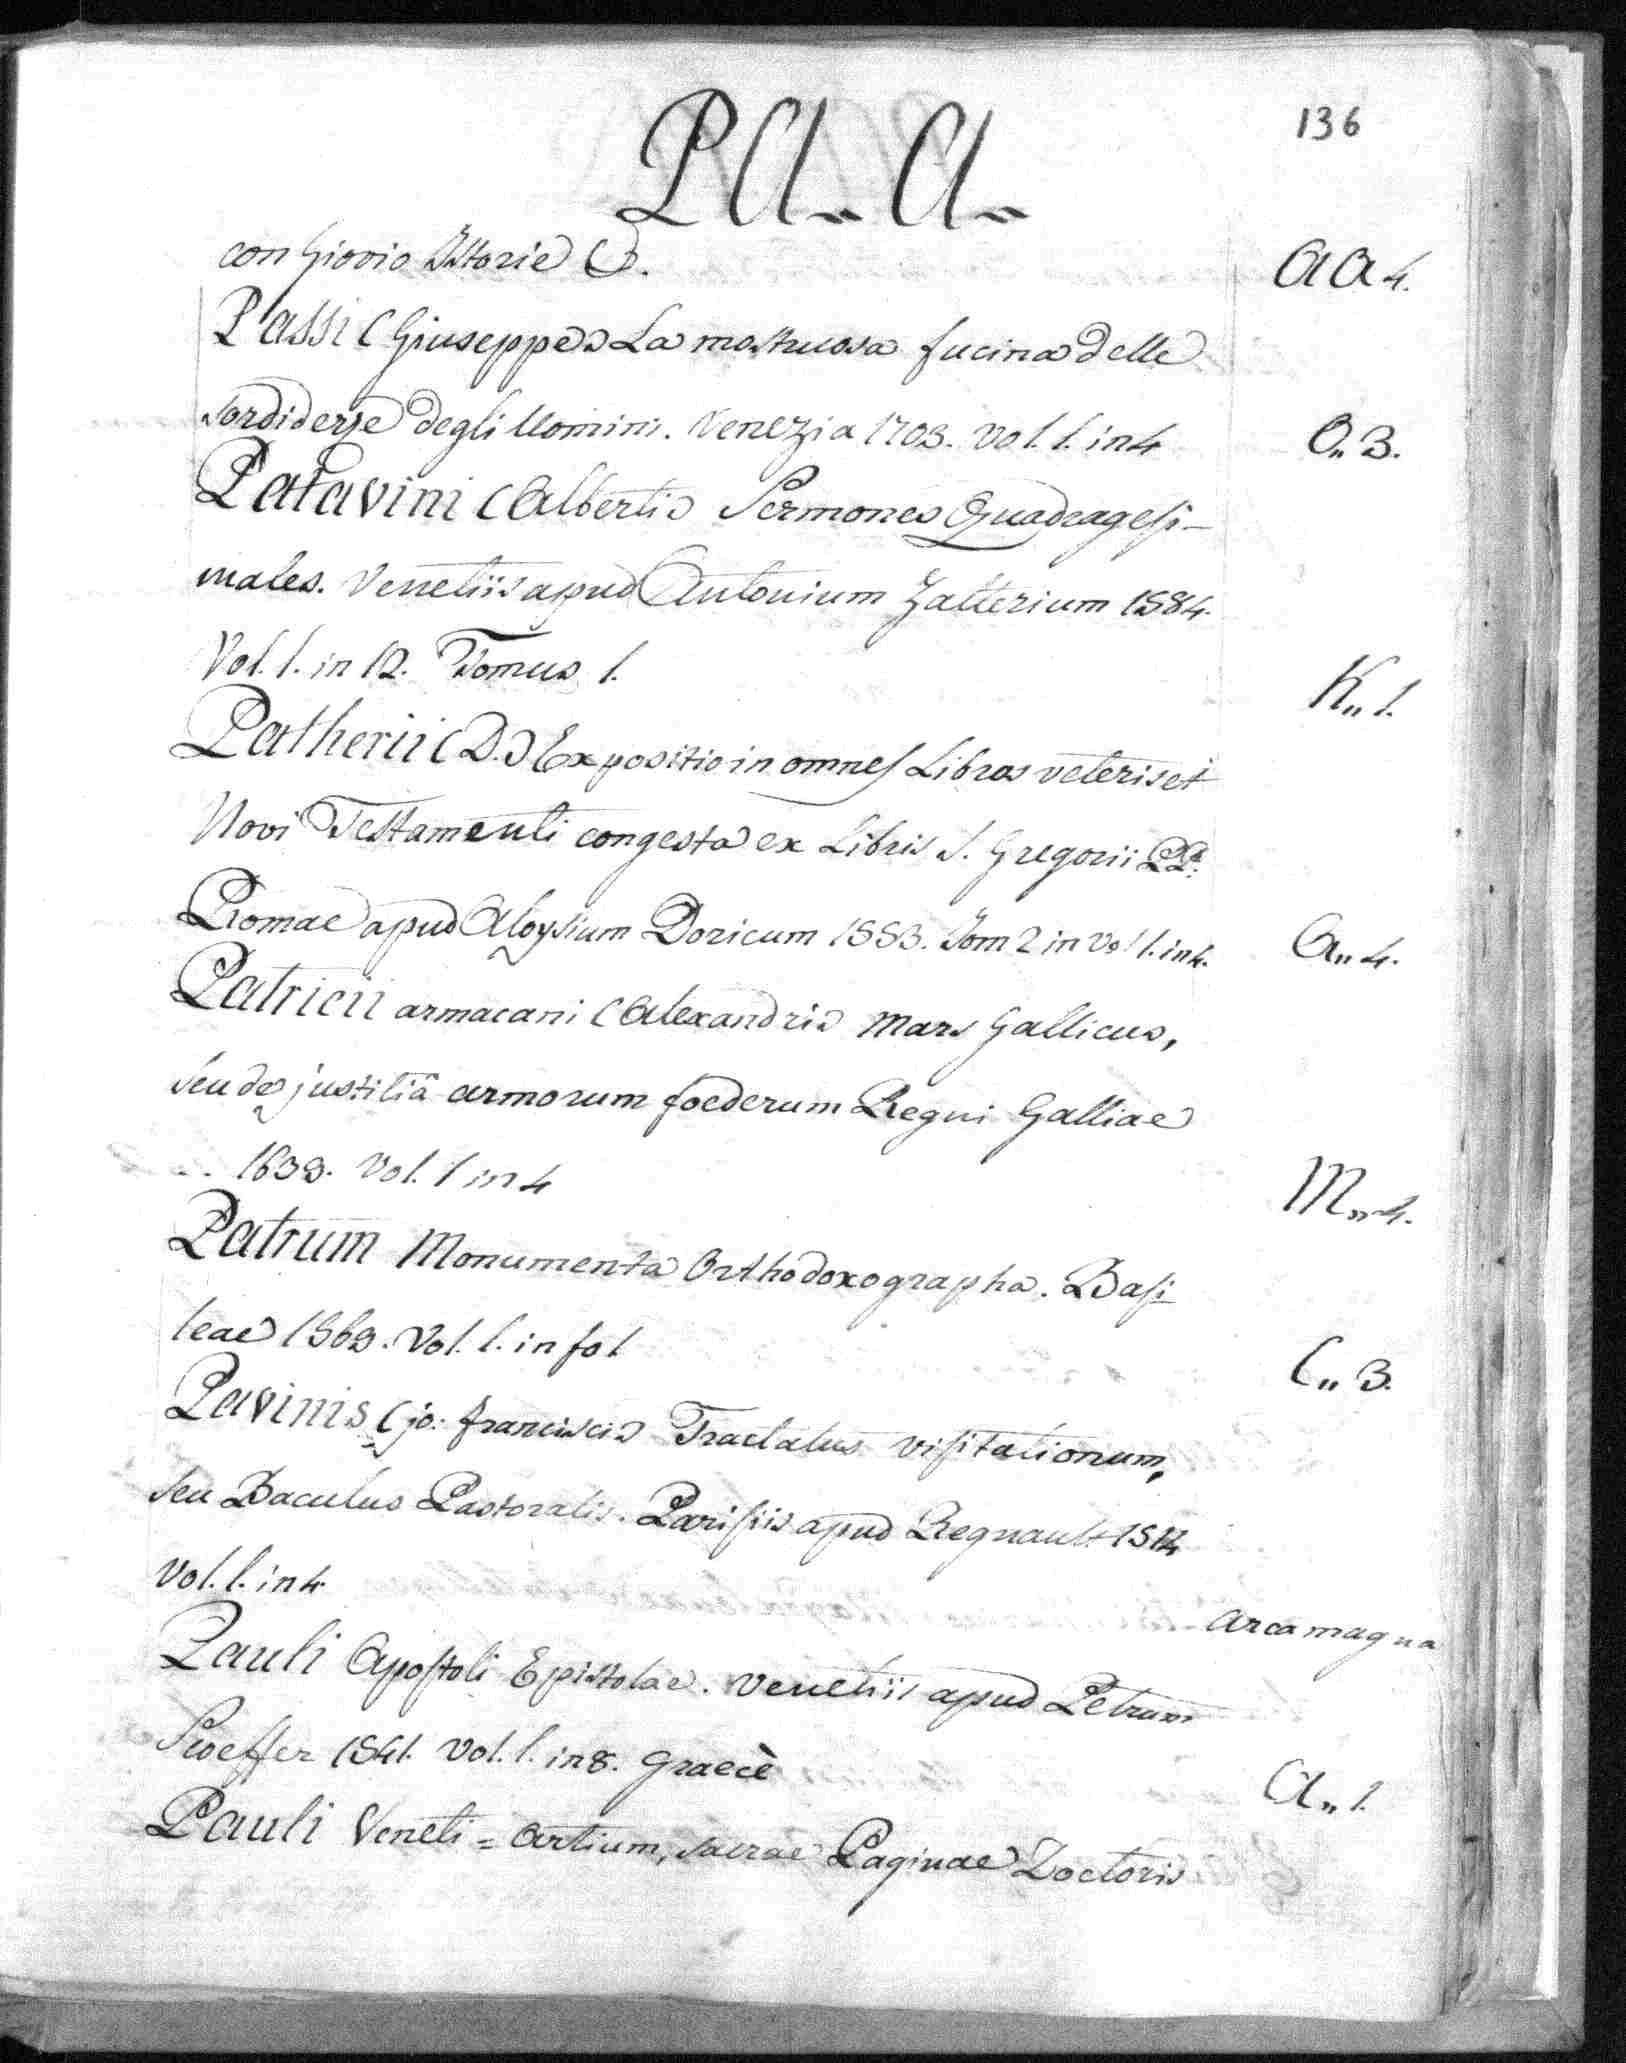 136
PA„ A„
con Giovio Istorie
AA 4.
Passi (Giuseppe) La mostruosa fucina delle
sordidezze degli Uomini. Venezia 1703. Vol. 1. in 4
O„ 3.
Patavini (Alberti) Sermones Quadragesi-
males. Venetiis apud Antonium Zalterium 1584.
Vol. 1. in 12. Tomus 1.
K„ 1.
Patherii (D.) Expositio in omnes Libros veteris et
Novi Testamenti congesta ex Libris S. Gregorii PP.
Romae apud Aloysium Doricum 1553. Tom 2 in Vol 1. in 4.
A„ 4.
Patricii armacani (Alexandri) Mars Gallicus,
seu de justitiâ armorum foederum Regni Galliae
.. 1639. Vol. 1 in 4
M„ 4.
Patrum Monumenta Orthodoxographa. Basi
leae 1569. Vol. 1. in fol
C„ 3.
Pavinis (jo: francisci) Tractatus visitationum,
seu Baculus Pastoralis. Parisiis apud Regnault 1514
Vol. 1. in 4.
Arca magna
Pauli Apostoli Epistolae. Venetiis apud Petrum
Scoeffer 1541. Vol. 1. in 8. Graecè
A„ 1.
Pauli Veneti = Artium, sacrae Paginae Doctoris